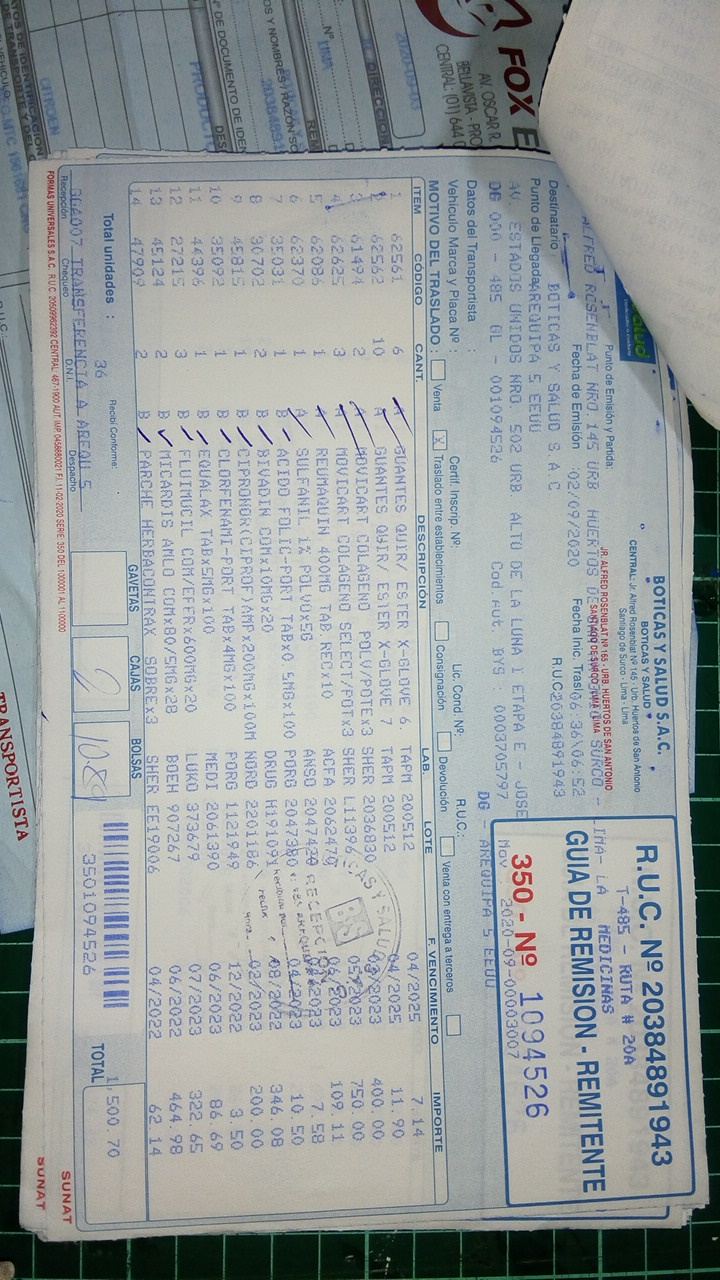 BOTICAS Y SALUD S.A.C.
BOTICAS Y SALUD
CENTRAL: Jr. Alfred Rosenblat Nº 145 - Urb. Huertos de San Antonio
Santiago de Surco - Lima - Lima
JR. ALFRED ROSENBLAT Nº 165 - URB. HUERTOS DE SAN ANTONIO
SANTIAGO DE SURCO - LIMA - LIMA
R.U.C. Nº 20384891943
T-485 - RUTA # 20A
MEDICINAS
GUIA DE REMISION - REMITENTE
350 - Nº 1094526
Mov. 2020-09-00003007
DG - AREQUIPA 5 EEUU
Punto de Emisión y Partida:
ALFRED ROSENBLAT NRO. 145 URB HUERTOS DE SURCO - LIMA- LA
Fecha de Emisión : 02/09/2020 Fecha Inic. Trasl 06:36\06:52
Destinatario : BOTICAS Y SALUD S A C R.U.C. 20384891943
Punto de Llegada: AREQUIPA 5 EEUU
AV. ESTADOS UNIDOS NRO. 502 URB ALTO DE LA LUNA I ETAPA E - JOSE
DG 000 - 485 GL - 001094526 Cod Aut. BYS : 0003705797
Datos del Transportista : R.U.C.:
Vehículo Marca y Placa Nº : Certif. Inscrip. Nº: Lic. Cond. Nº:
MOTIVO DEL TRASLADO : Venta X Traslado entre establecimientos Consignación Devolución Venta con entrega a terceros
ITEM CÓDIGO CANT. DESCRIPCIÓN LAB. LOTE F. VENCIMIENTO IMPORTE
1 62561 6 A GUANTES QUIR/ ESTER X-GLOVE 6. TAPM 200512 04/2025 7.14
2 62562 10 A GUANTES QUIR/ ESTER X-GLOVE 7 TAPM 200512 04/2025 11.90
3 61494 2 A MOVICART COLAGENO POLV/POTEx3 SHER 2036830 03/2023 400.00
4 62625 3 A MOVICART COLAGENO SELECT/POTx3 SHER L11396 05/2023 750.00
5 62086 1 A REUMAQUIN 400MG TAB.RECx10 ACFA 2062470 06/2023 109.11
6 62370 1 A SULFANIL 1% POLVOx5G ANSO 2047420 2023 7.58
7 35031 1 B ACIDO FOLIC-PORT TABx0.5MGx100 PORG 2047380 04/2023 10.50
8 30702 2 B BIVADIN COMx10MGx20 DRUG H19109 08/2022 346.08
9 45815 1 B CIPRONOR(CIPROF)AMPx200MGx100M NORD 2201186 02/2023 200.00
10 35092 1 B CLORFENAMI-PORT TABx4MGx100 PORG 1121949 12/2022 3.50
11 44396 1 B EQUALAX TABx5MGx100 MEDI 2061390 06/2023 86.69
12 27215 3 B FLUIMUCIL COM/EFFRx600MGx20 LUKO 373679 07/2023 322.65
13 45124 2 B MICARDIS AMLO COMx80/5MGx28 BOEH 907267 06/2022 464.98
14 47909 2 B PARCHE HERBACONTRAX SOBREx3 SHER EE19006 04/2022 62.14
Total unidades : 36
Recibí Conforme:
GAVETAS CAJAS BOLSAS
TOTAL 1,500.70
3501094526
GGA007 TRANSFERENCIA A AREQU 5
Recepción Chequeo D.N.I. Despacho
FORMAS UNIVERSALES S.A.C. R.U.C. 20509982392 CENTRAL: 467-1900 AUT. IMP. 0458680021 F.I. 11-02-2020 SERIE: 350 DEL 1000001 AL 1100000
SUNAT
SUNAT
TRANSPORTISTA
FOX
AV. OSCAR R.
BELLAVISTA - PRO
CENTRAL: (01) 644
2020-09-03
DIRECCION
Nº DE DOCUMENTO DE IDEN
PRODUCT
CITROEN
R.U.C.